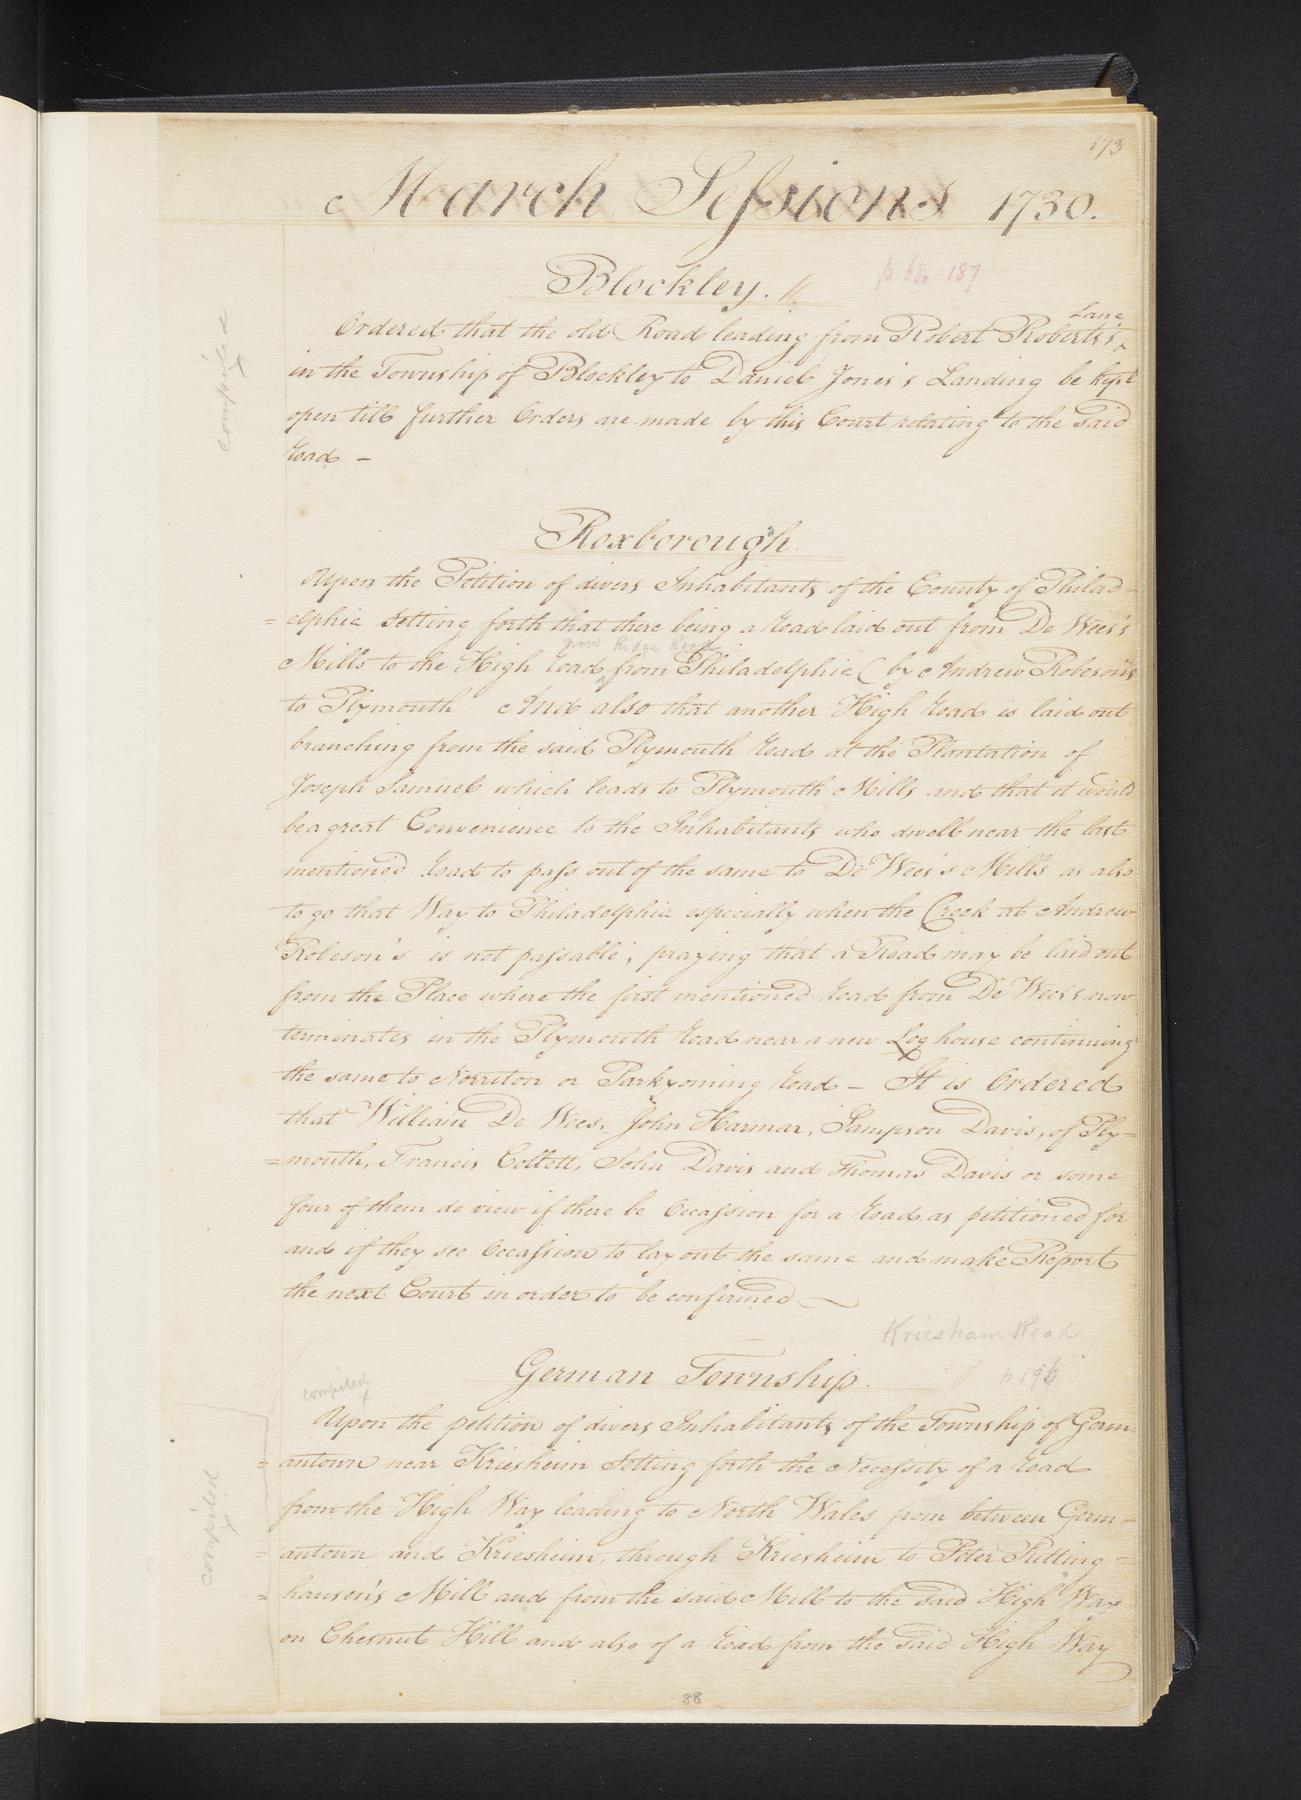 173
March Sessions 1730.
Blockley. //
p 68. 187
compiled x
Lane
Ordered that the old Road leading from Robert Roberts's ^
in the Township of Blockley to Daniel Jones's Landing be kept
open till further Orders are made by this Court relating to the said
Road -
Roxborough.
Upon the Petition of divers Inhabitants of the County of Philad=
=elphia setting forth that there being a Road laid out from De Wees's
now Ridge Road
Mills to the High Road ^ from Philadelphia (by Andrew Robeson's
to Plymouth And also that another High Road is laid out
branching from the said Plymouth Road at the Plantation of
Joseph Samuel which leads to Plymouth Mills and that it would
be a great Convenience to the Inhabitants who dwell near the last
mentioned Road to pass out of the same to De Wees's Mills as also
to go that Way to Philadelphia especially when the Creek at Andrew
Robeson's is not passable; praying that a Road may be laid out
from the Place where the first mentioned Road from De Wees's now
terminates in the Plymouth Road near a new Log house continuing
the same to Norriton or Parkyoming Road - It is Ordered
that William De Wees, John Harmar, Sampson Davis, of Ply=
=mouth, Francis Collett, John Davis and Thomas Davis or some
four of them do view if there be Occassion for a Road as petitioned for
and if they see Occassion to lay out the same and make Report
the next Court in order to be confirmed
Kriesham Road
German Township.
// p 196
compiled x
Upon the petition of divers Inhabitants of the Township of Germ
=antown near Kriesheim Setting forth the Necessity of a Road
from the High Way leading to North Wales from between Germ=
=antown and Kriesheim, through Kriesheim to Peter Ritting=
=hausen's Mill and from the said Mill to the said High Way
on Chesnut Hill and also of a Road from the said High Way
compiled x
88